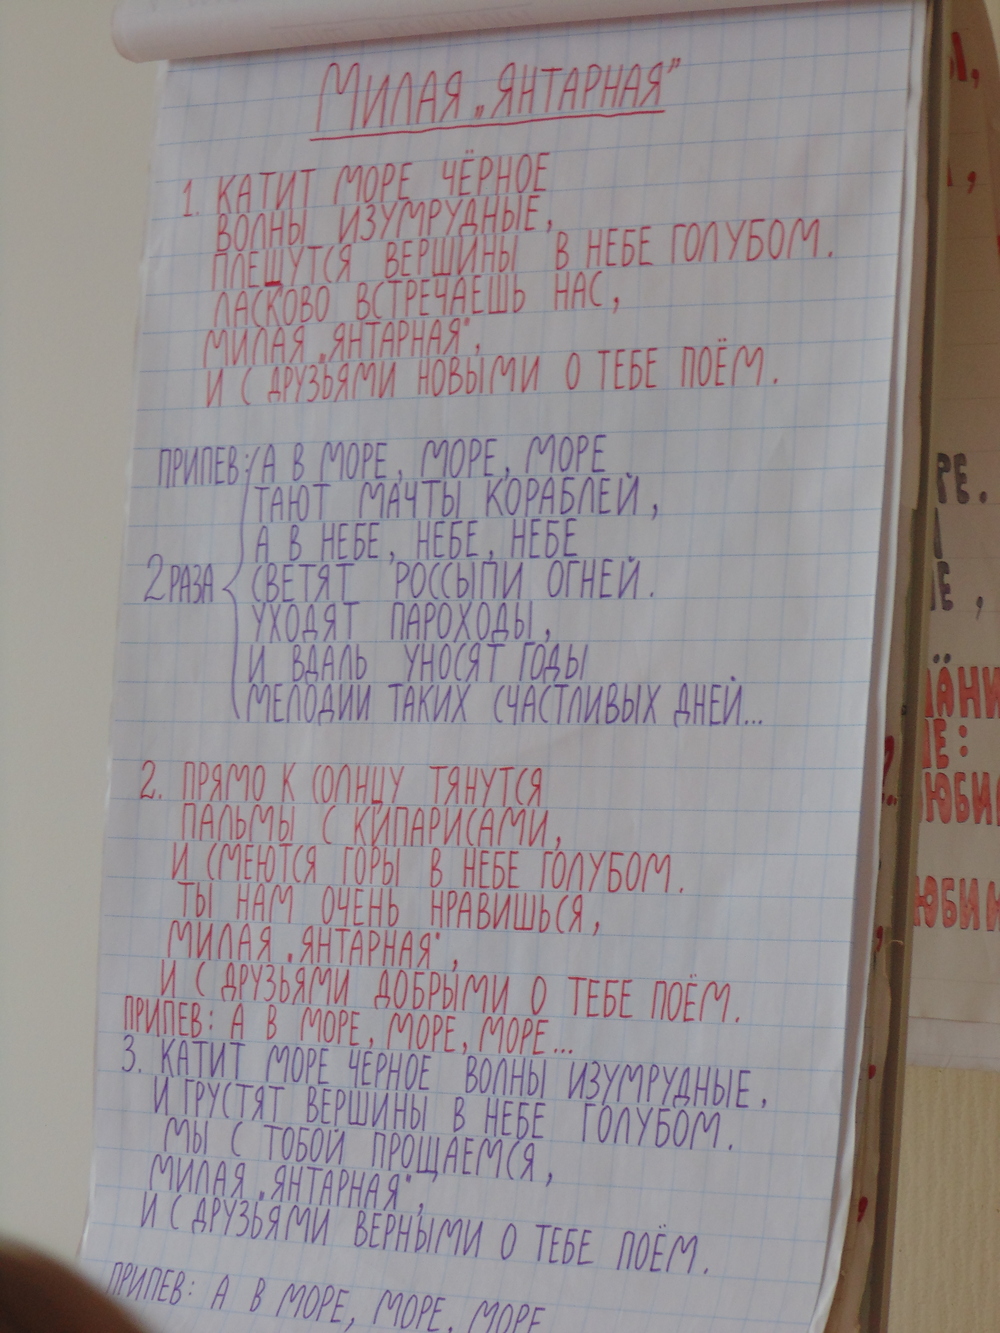 МИЛАЯ „ЯНТАРНАЯ”
1. КАТИТ МОРЕ ЧЁРНОЕ
ВОЛНЫ ИЗУМРУДНЫЕ,
ПЛЕЩУТСЯ ВЕРШИНЫ В НЕБЕ ГОЛУБОМ.
ЛАСКОВО ВСТРЕЧАЕШЬ НАС,
МИЛАЯ „ЯНТАРНАЯ”,
И С ДРУЗЬЯМИ НОВЫМИ О ТЕБЕ ПОЁМ.
ПРИПЕВ: А В МОРЕ, МОРЕ, МОРЕ
ТАЮТ МАЧТЫ КОРАБЛЕЙ,
А В НЕБЕ, НЕБЕ, НЕБЕ
2 РАЗА СВЕТЯТ РОССЫПИ ОГНЕЙ.
УХОДЯТ ПАРОХОДЫ,
И ВДАЛЬ УНОСЯТ ГОДЫ
МЕЛОДИИ ТАКИХ СЧАСТЛИВЫХ ДНЕЙ...
2. ПРЯМО К СОЛНЦУ ТЯНУТСЯ
ПАЛЬМЫ С КИПАРИСАМИ,
И СМЕЮТСЯ ГОРЫ В НЕБЕ ГОЛУБОМ.
ТЫ НАМ ОЧЕНЬ НРАВИШЬСЯ,
МИЛАЯ „ЯНТАРНАЯ”,
И С ДРУЗЬЯМИ ДОБРЫМИ О ТЕБЕ ПОЁМ.
ПРИПЕВ: А В МОРЕ, МОРЕ, МОРЕ...
3. КАТИТ МОРЕ ЧЁРНОЕ ВОЛНЫ ИЗУМРУДНЫЕ,
И ГРУСТЯТ ВЕРШИНЫ В НЕБЕ ГОЛУБОМ.
МЫ С ТОБОЙ ПРОЩАЕМСЯ,
МИЛАЯ „ЯНТАРНАЯ”,
И С ДРУЗЬЯМИ ВЕРНЫМИ О ТЕБЕ ПОЁМ.
ПРИПЕВ: А В МОРЕ, МОРЕ, МОРЕ